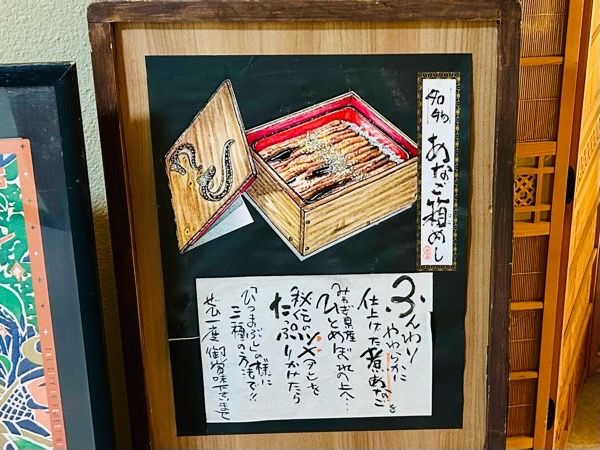 名物 あなご箱めし
はこ
ふんわり
やわらかに
仕上げた煮あなごを
みやぎ県産
ひとめぼれの上へ…
秘伝のツメアンを
たっぷりかけたら
「ひつまぶし」の様に
三種の方法で!!
ぜひ一度御賞味下さいませ